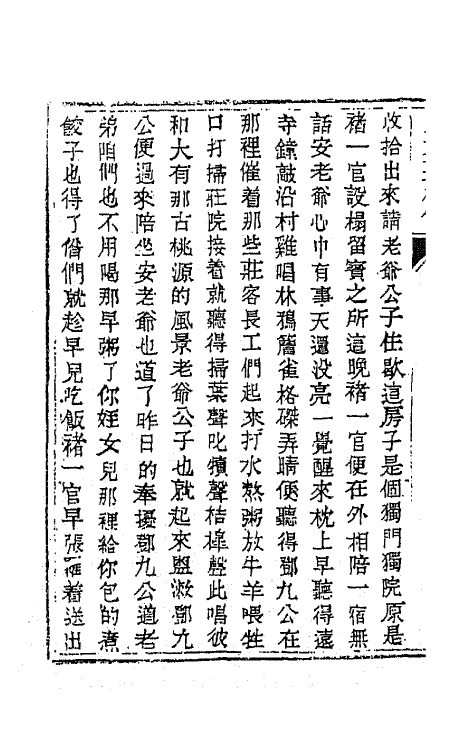 收拾出來請老爺公子住歇這房子是個獨門獨院原是
褚一官設榻留賓之所這晚褚一官便在外相陪一宿無
話安老爺心中有事天還没亮一覺醒來枕上早聽得遠
寺鐘敲沿村雞唱林鴉簷雀格磔弄晴便聽得鄧九公在
那裡催着那些莊客長工們起來打水熬粥放牛羊喂牲
口打掃莊院接着就聽得掃葉聲叱犢聲桔槔聲此唱彼
和大有那古桃源的風景老爺公子也就起來盥漱鄧九
公便過來陪坐安老爺也道了昨日的奉擾鄧九公道老
弟咱們也不用喝那早粥了你姪女兒那裡給你包的煮
餃子也得了偺們就趁早兒吃飯褚一官早張羅着送出